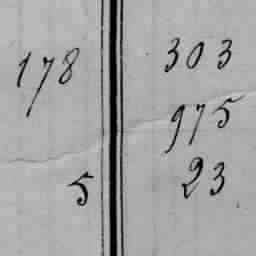 178 303
975
5 23